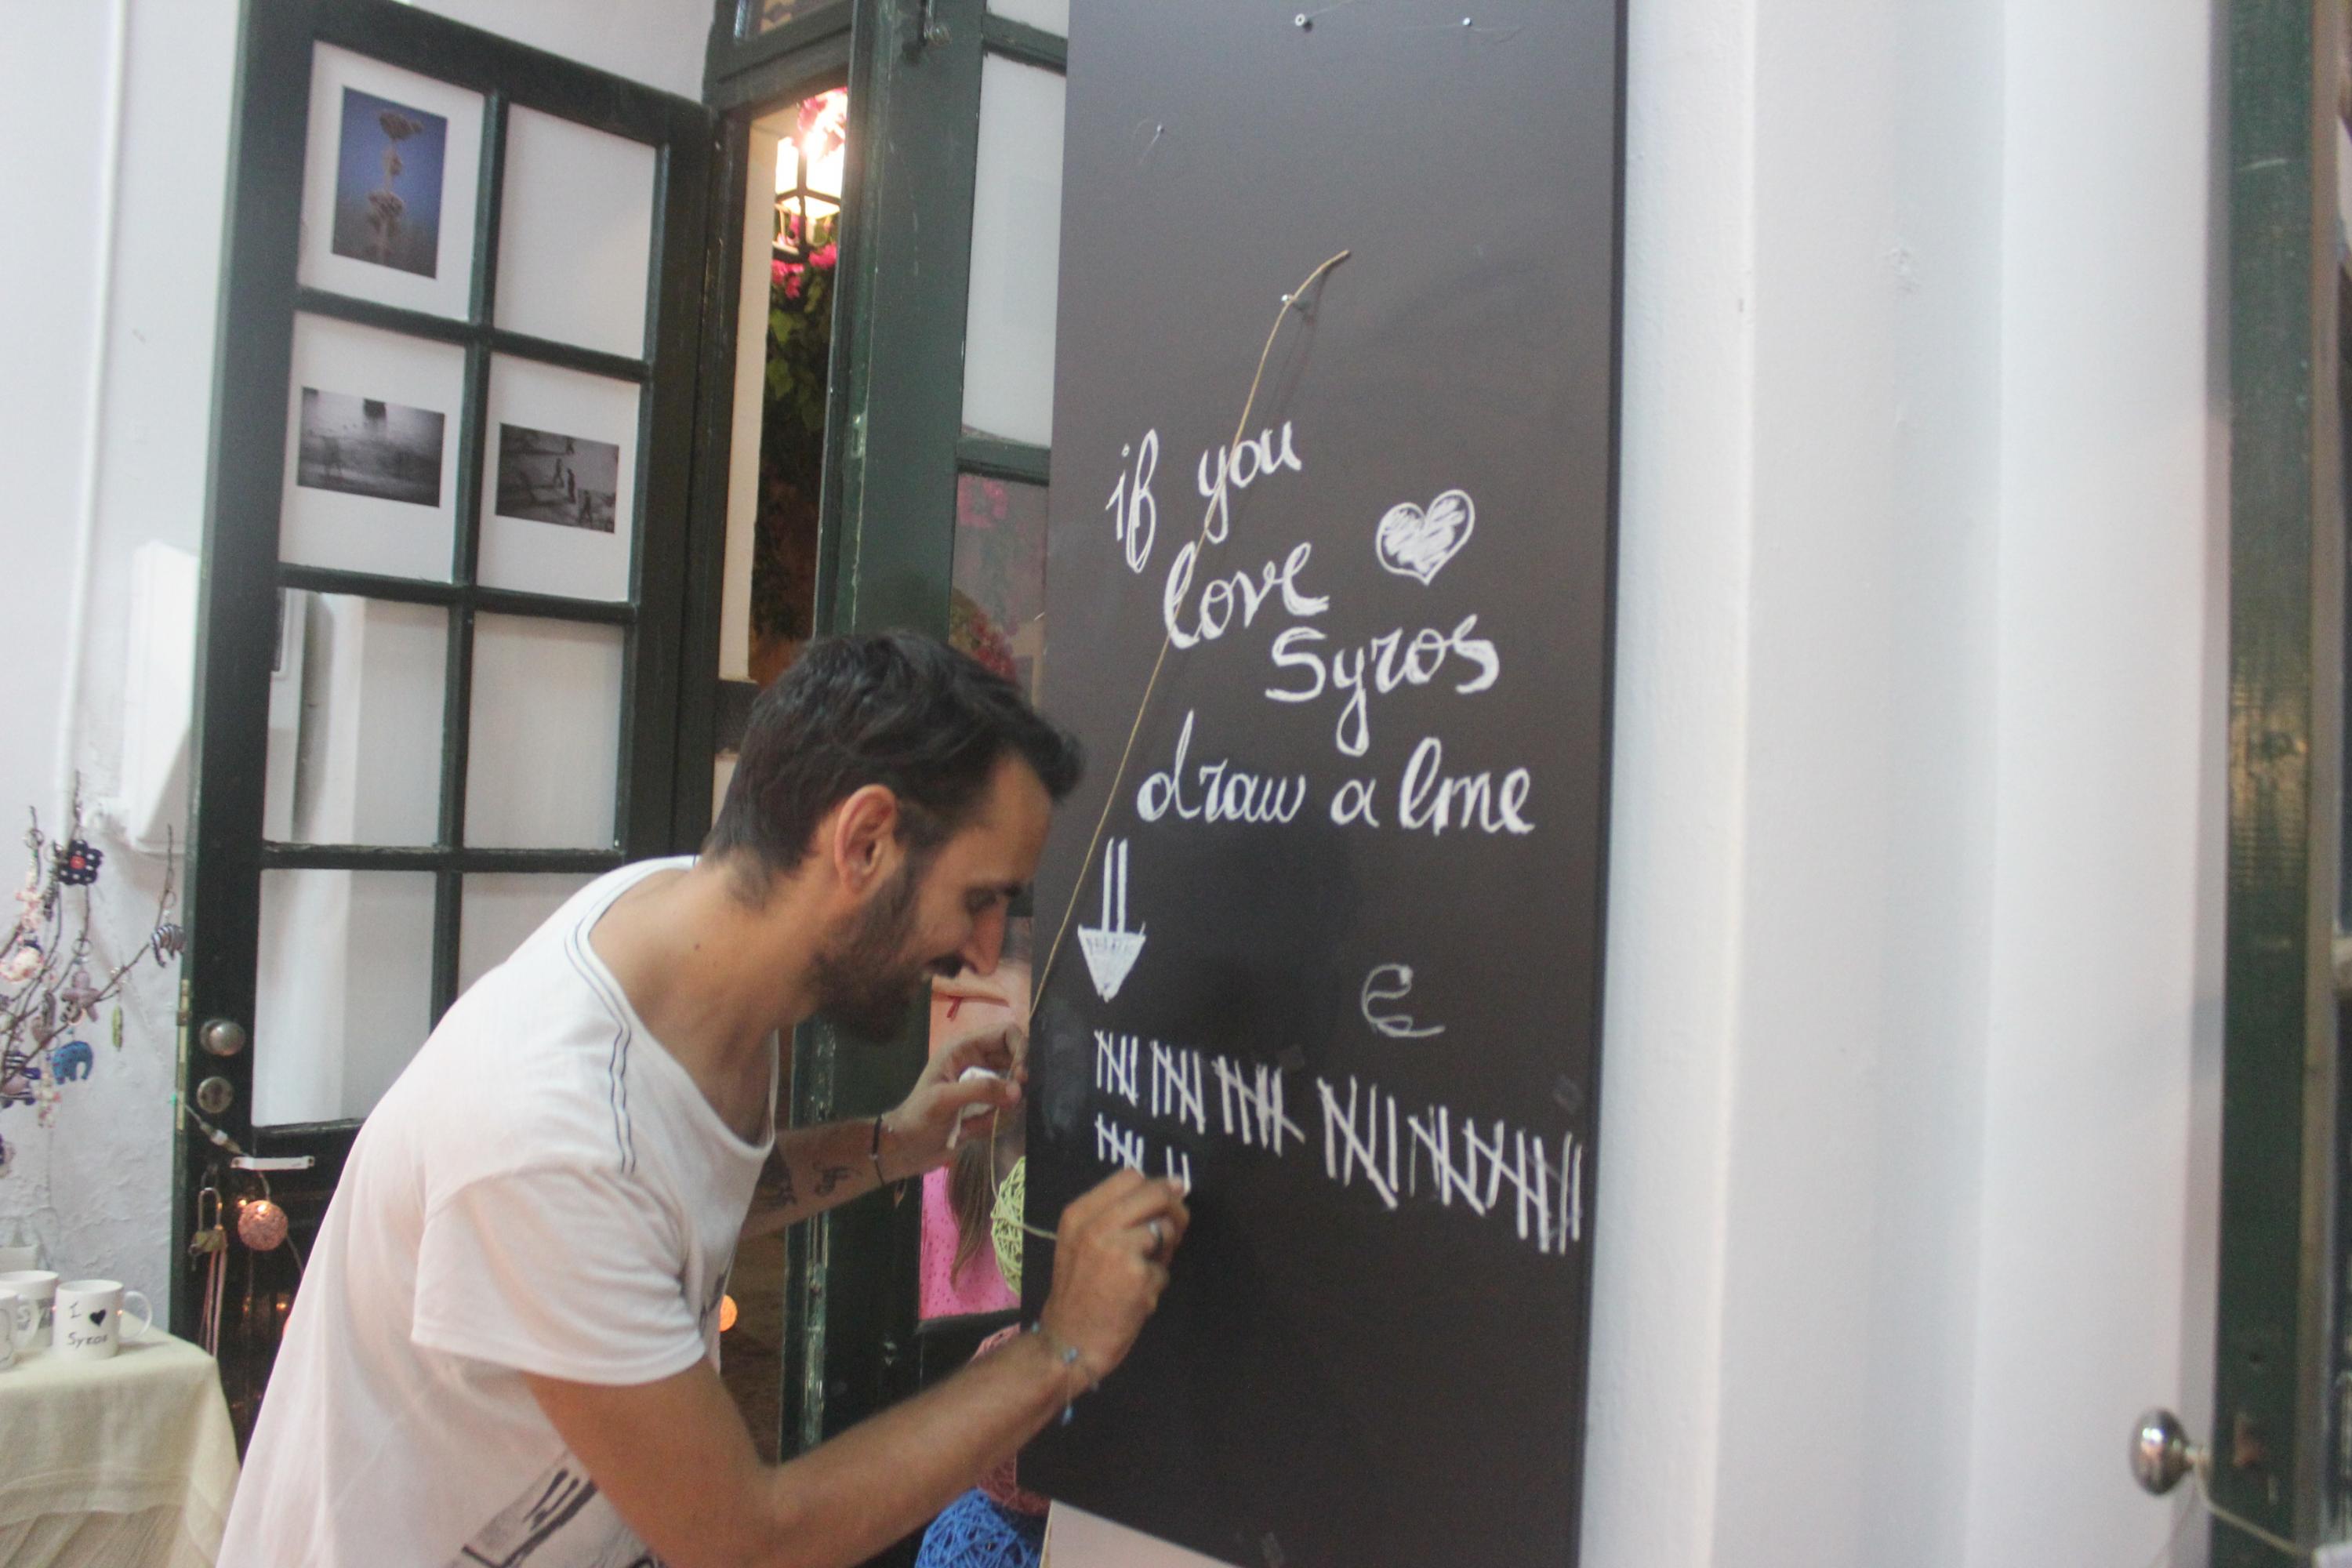 if you
love
Syros
draw a line
e
I ♥
Syros